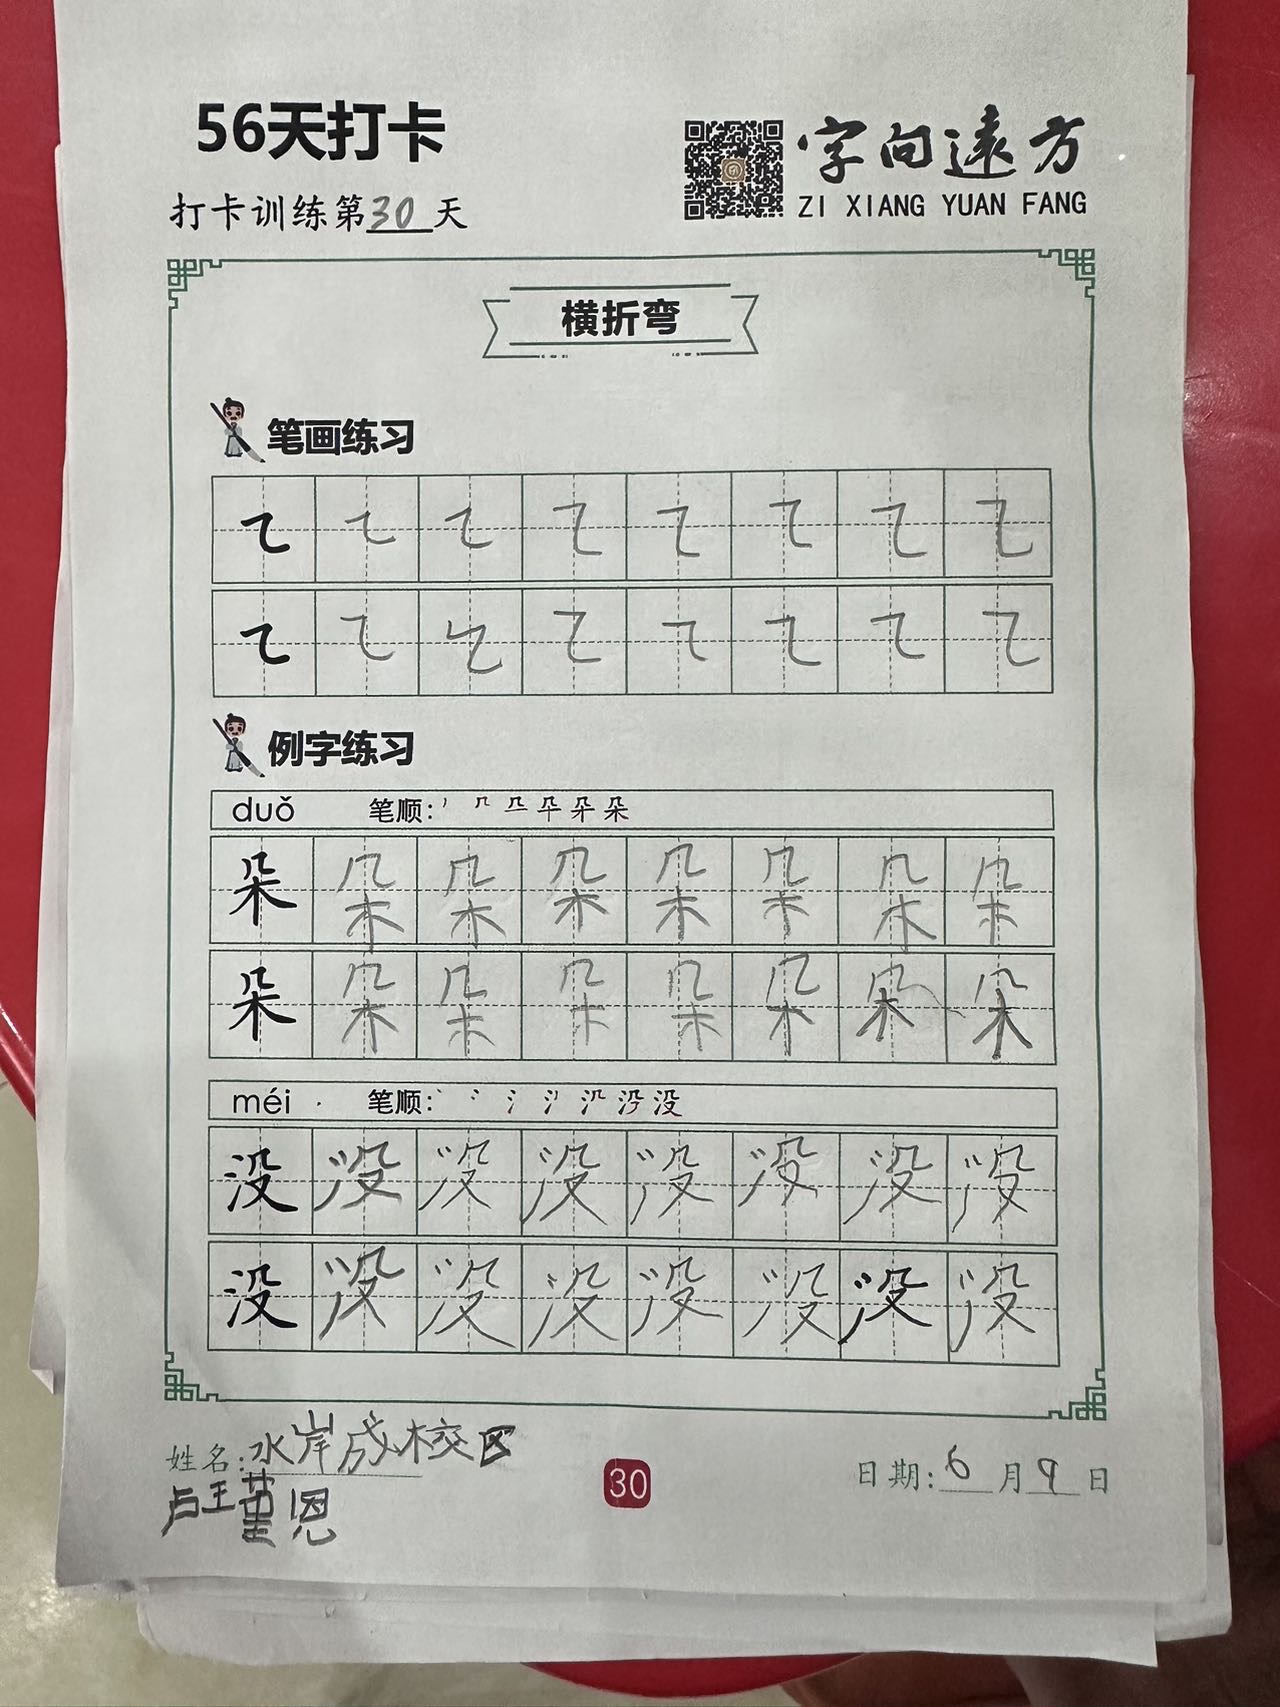 56天打卡
字向遠方
打卡训练第30天
ZI XIANG YUAN FANG
横折弯
笔画练习
例字练习
duǒ 笔顺:
朵 朵 朵 朵 朵 朵 朵 朵
朵 朵 朵 朵 朵 朵 朵 朵
méi 笔顺:
没 没 没 没 没 没 没 没
没 没 没 没 没 没 没 没
姓名:水岸成校区
卢王董恩
30
日期:6月9日